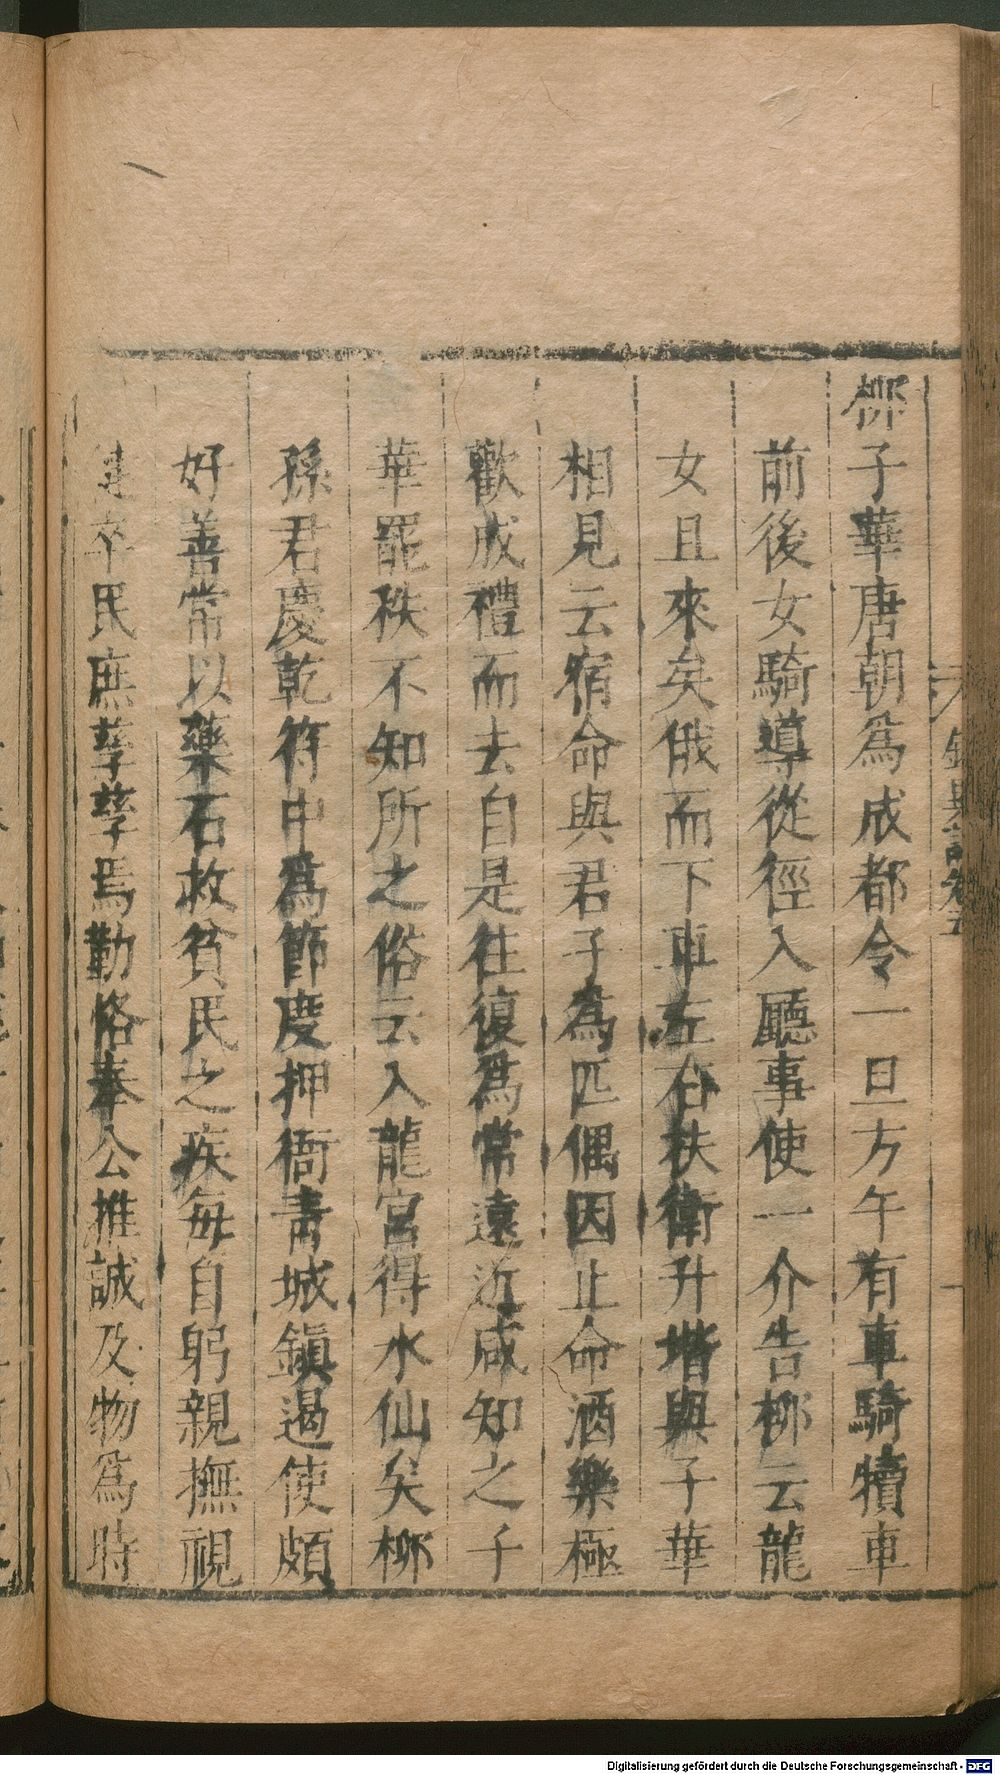 柳子華唐朝爲成都令一旦方午有車騎犢車
前後女騎導從徑入廳事使一介告柳云龍
女且來矣俄而下車左右扶衛升堦與子華
相見云宿命與君子爲匹偶因止命酒樂極
歡成禮而去自是往復爲常遠近咸知之子
華罷秩不知所之俗云入龍宮得水仙矣柳
孫君慶乾符中爲節度押衙青城鎮遏使頗
好善常以藥石救貧民之疾每自躬親撫視
卒民庶孳孳焉勤恪奉公推誠及物爲時
錄異記卷五
Digitalisierung gefördert durch die Deutsche Forschungsgemeinschaft - DFG